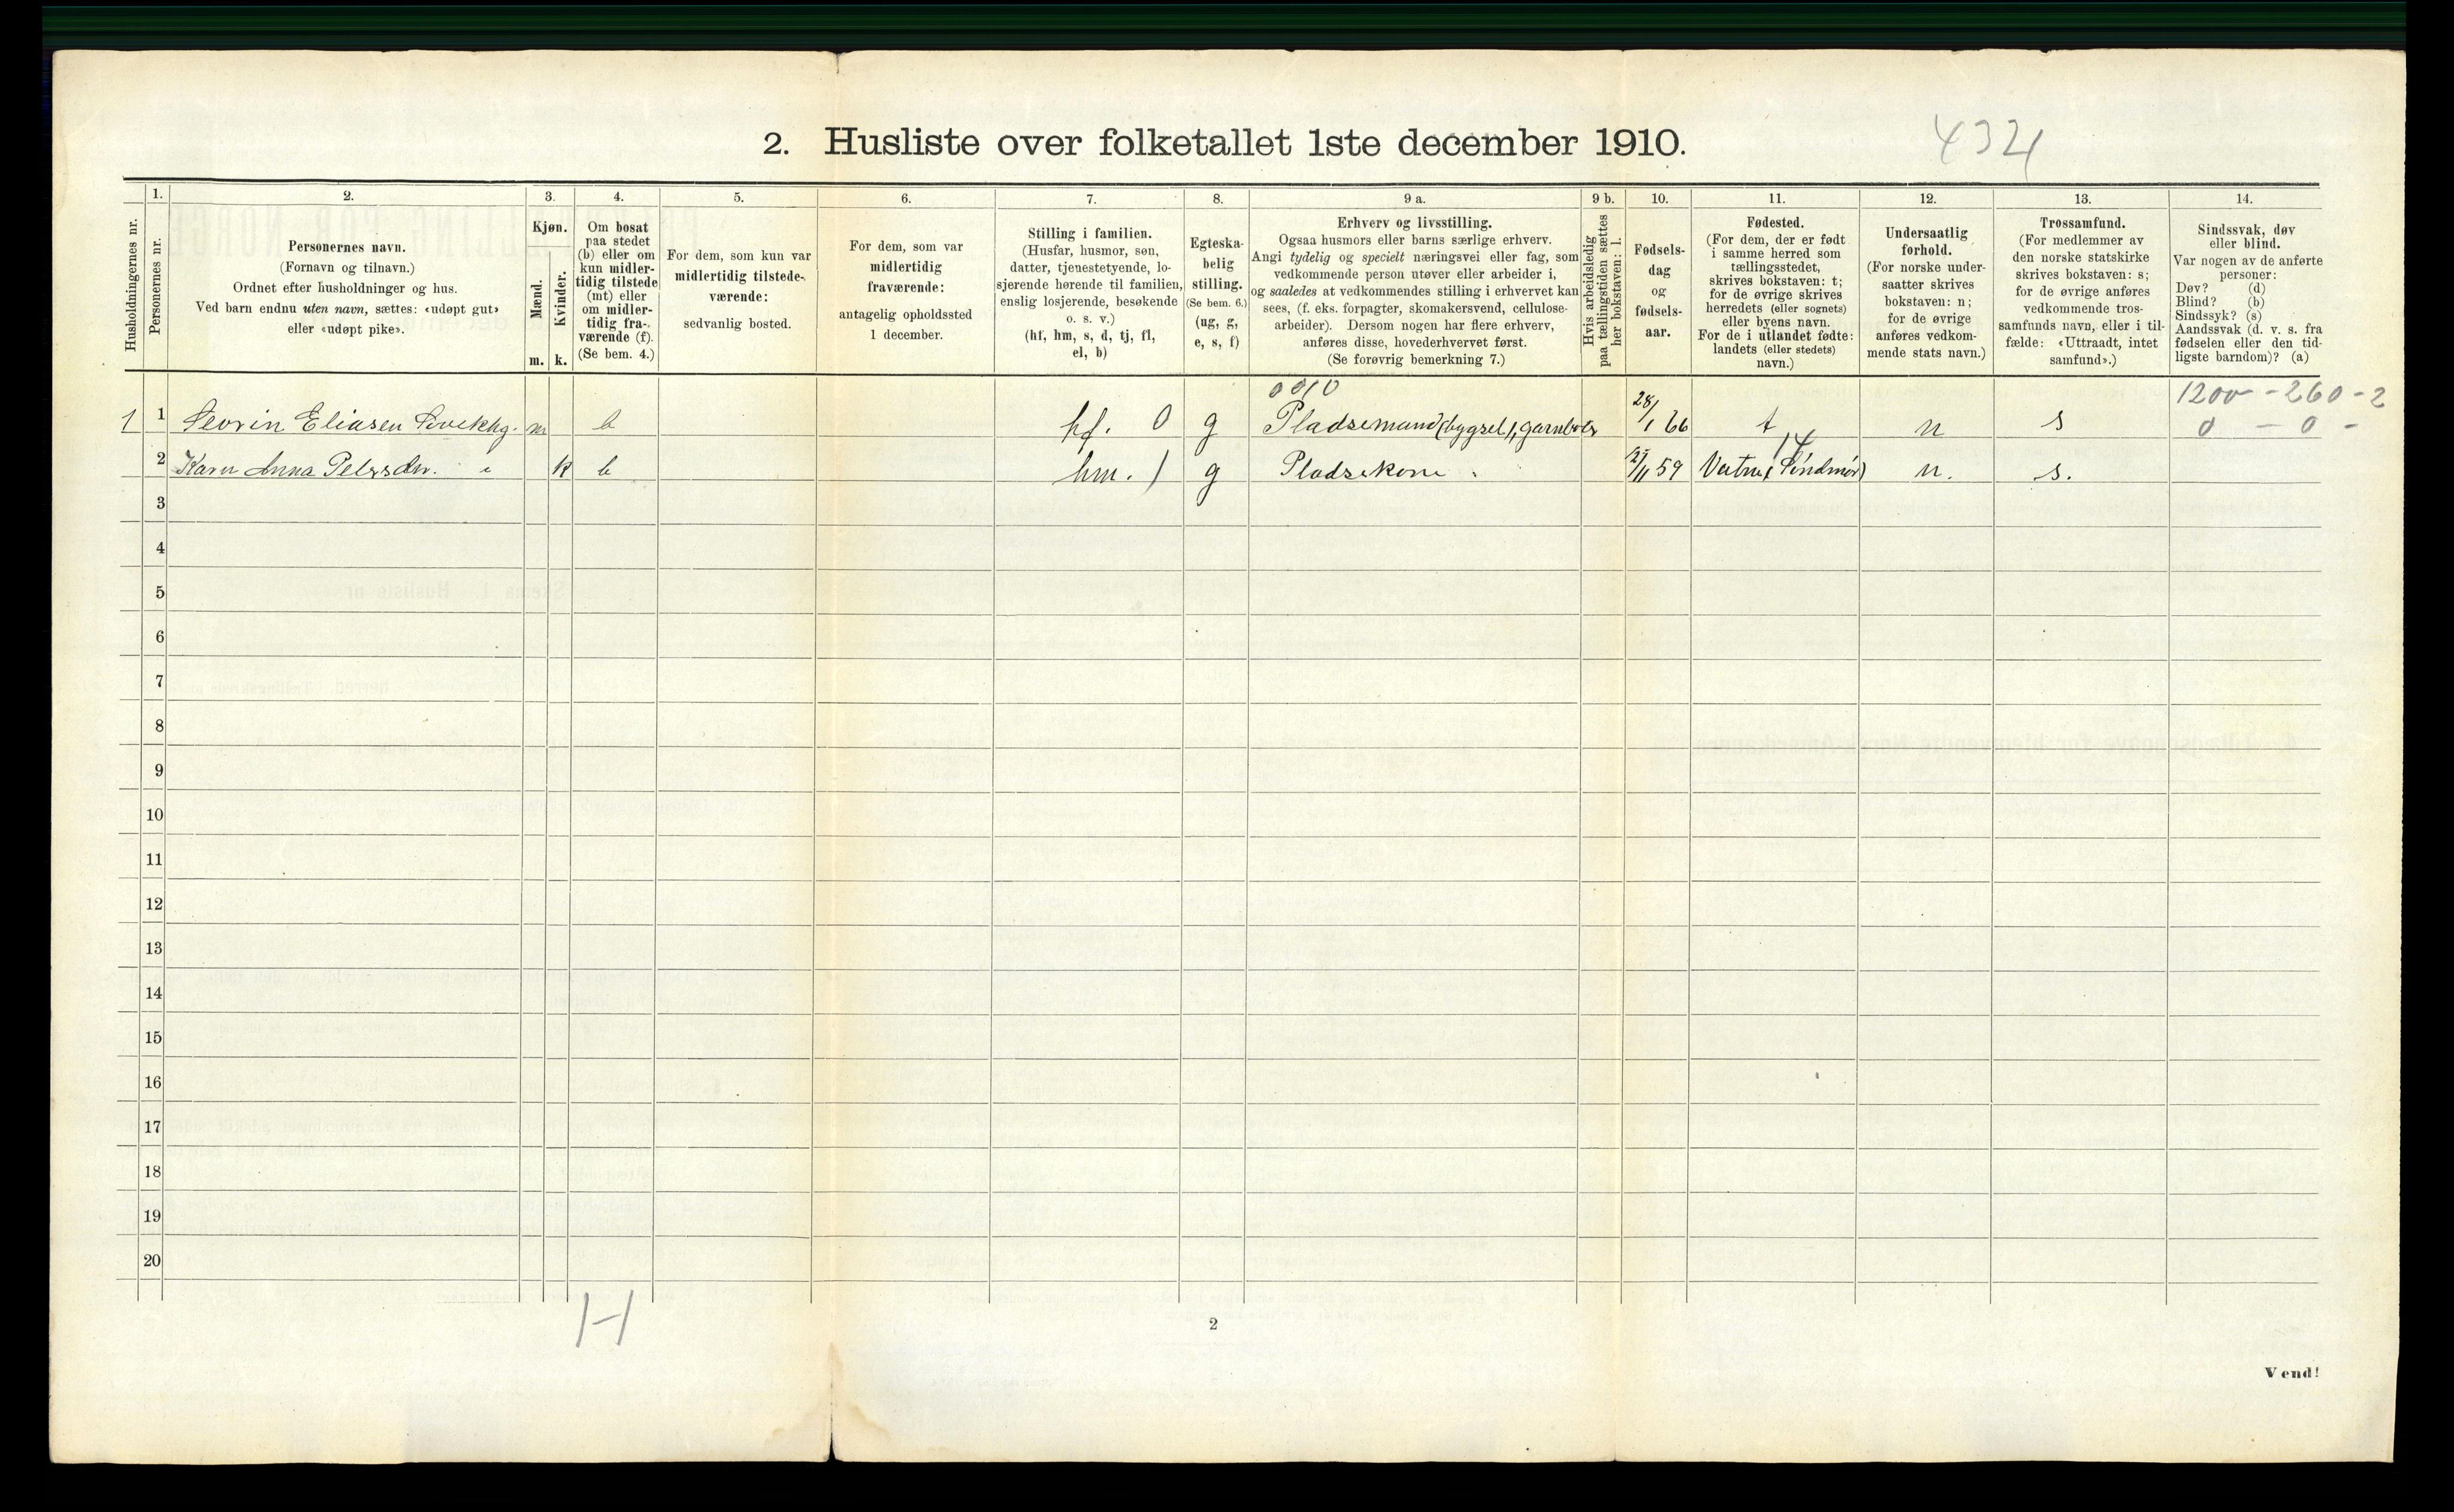 2. Husliste over folketallet 1ste december 1910.
4321
Husholdningernes nr.
1.
Personernes nr.
2.
Personernes navn.
(Fornavn og tilnavn.)
Ordnet efter husholdninger og hus.
Ved barn endnu uten navn, sættes: «udøpt gut»
eller «udøpt pike».
3.
Kjøn.
Mænd.
m.
Kvinder.
k.
4.
Om bosat
paa stedet
(b) eller om
kun midler-
tidig tilstede
(mt) eller
om midler-
tidig fra-
værende (f).
(Se bem. 4.)
5.
For dem, som kun var
midlertidig tilstede-
værende:
sedvanlig bosted.
6.
For dem, som var
midlertidig
fraværende:
antagelig opholdssted
1 december.
7.
Stilling i familien.
(Husfar, husmor, søn,
datter, tjenestetyende, lo-
sjerende hørende til familien,
enslig losjerende, besøkende
o. s. v.)
(hf, hm, s, d, tj, fl,
el, b)
8.
Egteska-
belig
stilling.
(Se bem. 6.)
(ug, g,
e, s, f)
9 a.
Erhverv og livsstilling.
Ogsaa husmors eller barns særlige erhverv.
Angi tydelig og specielt næringsvei eller fag, som
vedkommende person utøver eller arbeider i,
og saaledes at vedkommendes stilling i erhvervet kan
sees, (f. eks. forpagter, skomakersvend, cellulose-
arbeider). Dersom nogen har flere erhverv,
anføres disse, hovederhvervet først.
(Se forøvrig bemerkning 7.)
9 b.
Hvis arbeidsledig
paa tællingstiden sættes
her bokstaven: l.
10.
Fødsels-
dag
og
fødsels-
aar.
11.
Fødested.
(For dem, der er født
i samme herred som
tællingsstedet,
skrives bokstaven: t;
for de øvrige skrives
herredets (eller sognets)
eller byens navn.
For de i utlandet fødte:
landets (eller stedets)
navn.)
12.
Undersaatlig
forhold.
(For norske under-
saatter skrives
bokstaven: n;
for de øvrige
anføres vedkom-
mende stats navn.)
13.
Trossamfund.
(For medlemmer av
den norske statskirke
skrives bokstaven: s;
for de øvrige anføres
vedkommende tros-
samfunds navn, eller i til-
fælde: «Uttraadt, intet
samfund».)
14.
Sindssvak, døv
eller blind.
Var nogen av de anførte
personer:
Døv? (d)
Blind? (b)
Sindssyk? (s)
Aandssvak (d. v. s. fra
fødselen eller den tid-
ligste barndom)? (a)
0010
1200 - 260 - 2
1 1 Sevrin Eliasen m b hf. 0 g Pladsemand (bygsel), 28/1 66 t n s 0 - 0 -
14
2 Karn Anna Petersdtr. " k b hm. 1 g Pladsekone /11 59 Vatne (Søndmør) n. s.
3
4
5
6
7
8
9
10
11
12
13
14
15
16
17
18
19
20
H
2
Vend!